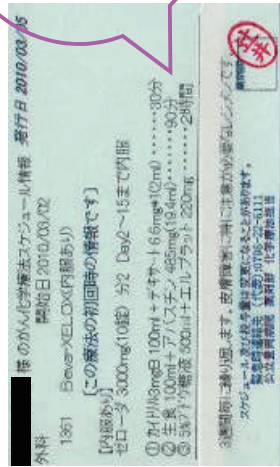 様のがん化学療法スケジュール情報 発行日 2010/03/05
外科 開始日 2010/03/02
1361 Beva+XELOX(内服あり)
【この療法の初回時の情報です】
[内服あり]
ゼローダ 3000mg(10錠) 分2 Day2~15まで内服
①カイトリル3mgB 100ml+デキサート 6.6mg*1(2ml)・・・・・30分
②生食 100ml+アバスチン 485mg(19.4ml)・・・・・・90分
③5%ブドウ糖液 500ml+エルプラット 220mg・・・・・・2時間
3週間毎に繰り返します。皮膚障害に特に注意が必要なレジメンです。
スケジュール及び投与量は変更になることがあります。